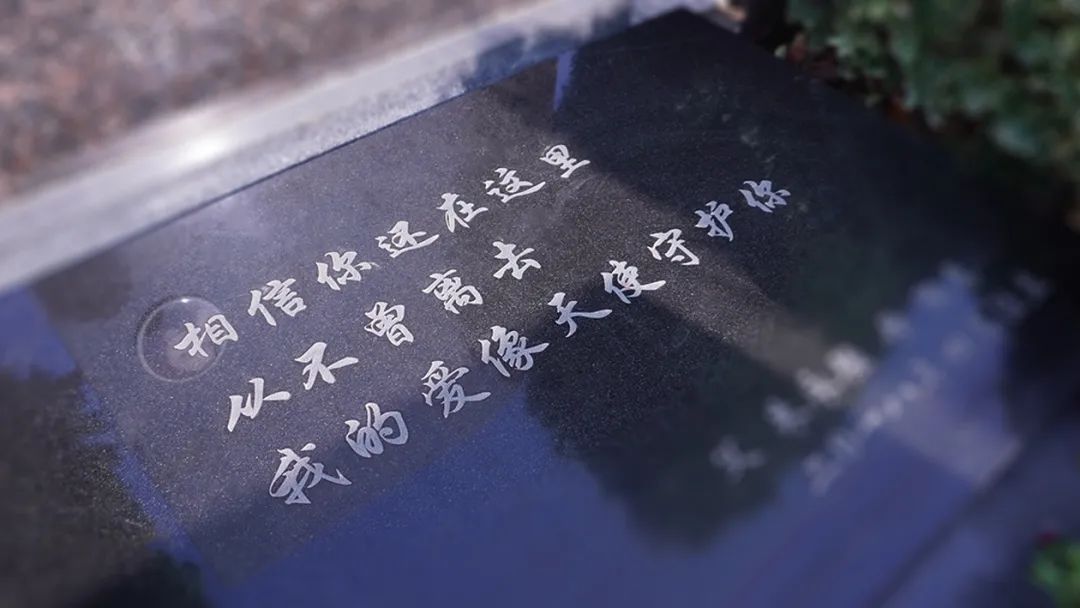 相信你还在这里
从不曾离去
我的爱像天使守护你